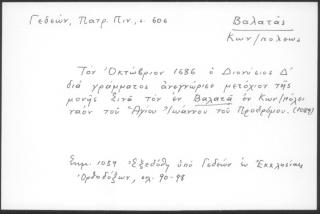 Γεδεών, Πατρ. Πιν., σ. 606
Βαλατάς
Κων/πόλεως
Τὸν Ὀκτώβριον 1686 ὁ Διονύσιος Δ'
διὰ γράμματος ἀνεγνώρισε μετόχιον τῆς
μονῆς Σινᾶ τὸν ἐν Βαλατᾷ ἐν Κων/πόλει
ναὸν τοῦ Ἁγίου Ἰωάννου τοῦ Προδρόμου. (1089)
Σημ. 1089 Ἐξεδόθη ὑπὸ Γεδεὼν ἐν Ἐκκλησίᾳ
Ὀρθοδόξων, σελ. 90-98